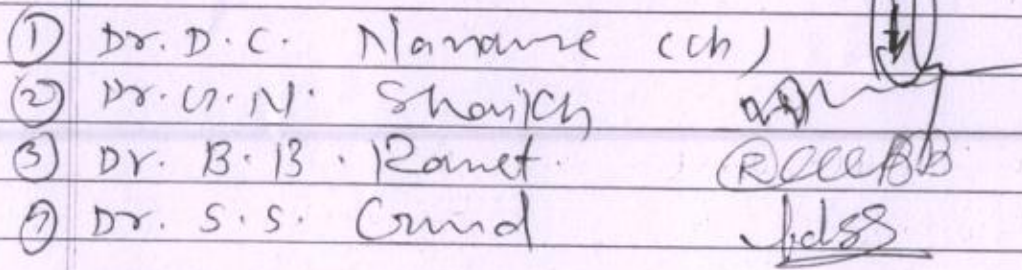 ① Dr. D. C. Nanavre (ch)
② Dr. G. N. Shaikh
③ Dr. B. B. Raut.
④ Dr. S. S. Gund